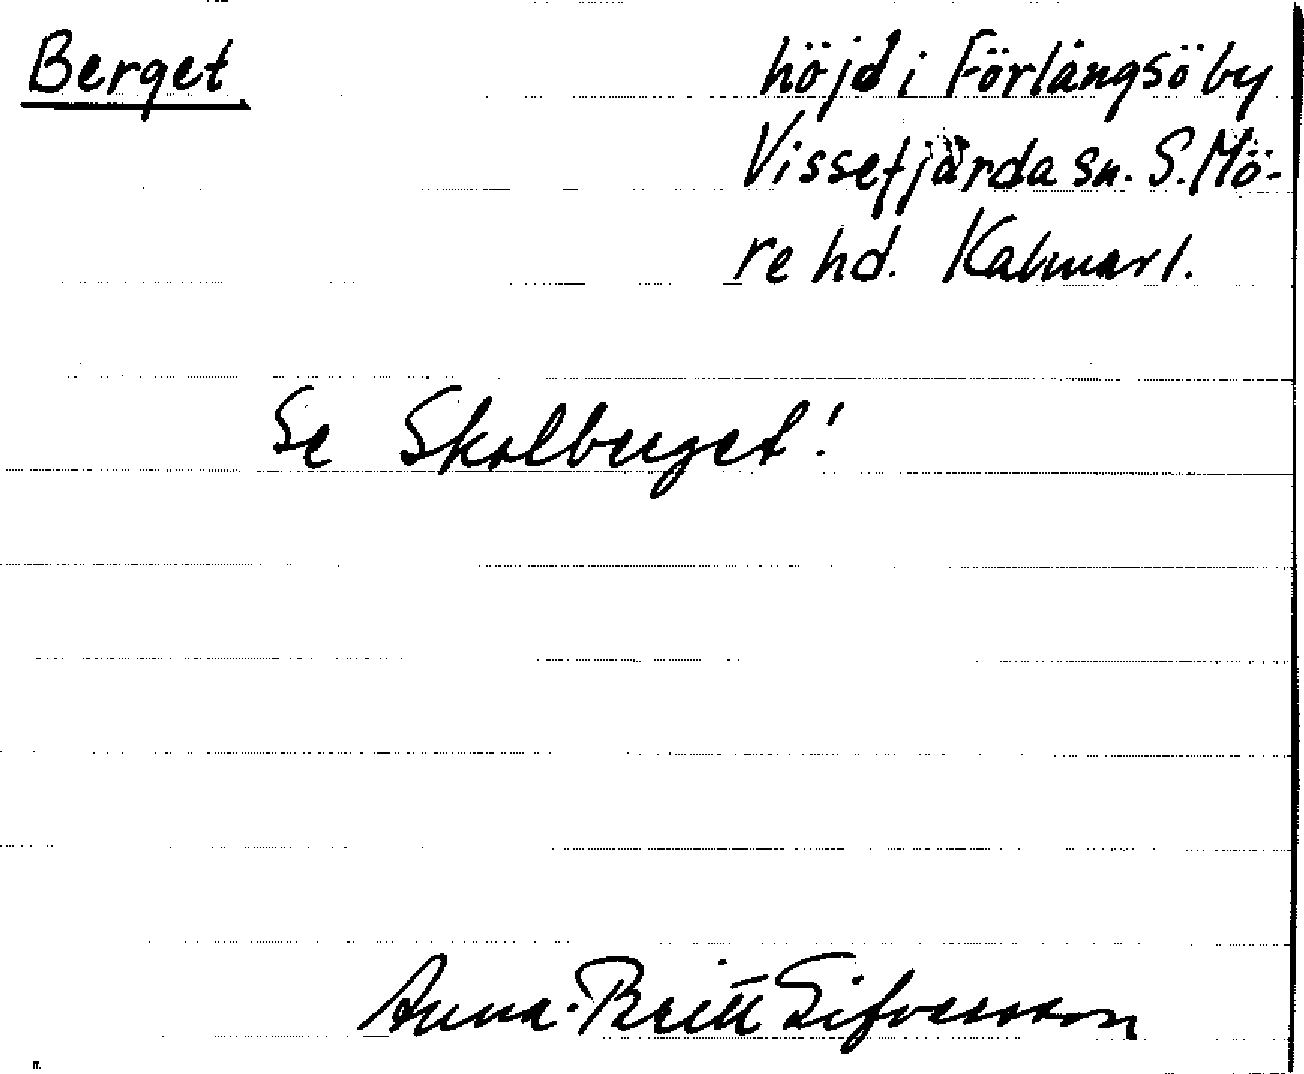 Berget.
höjd i Förlångsö by
Vissefjärda sn. S. Mö-
re hd. Kalmar l.
Se Skolberget!
Anna-Britt Sifversson